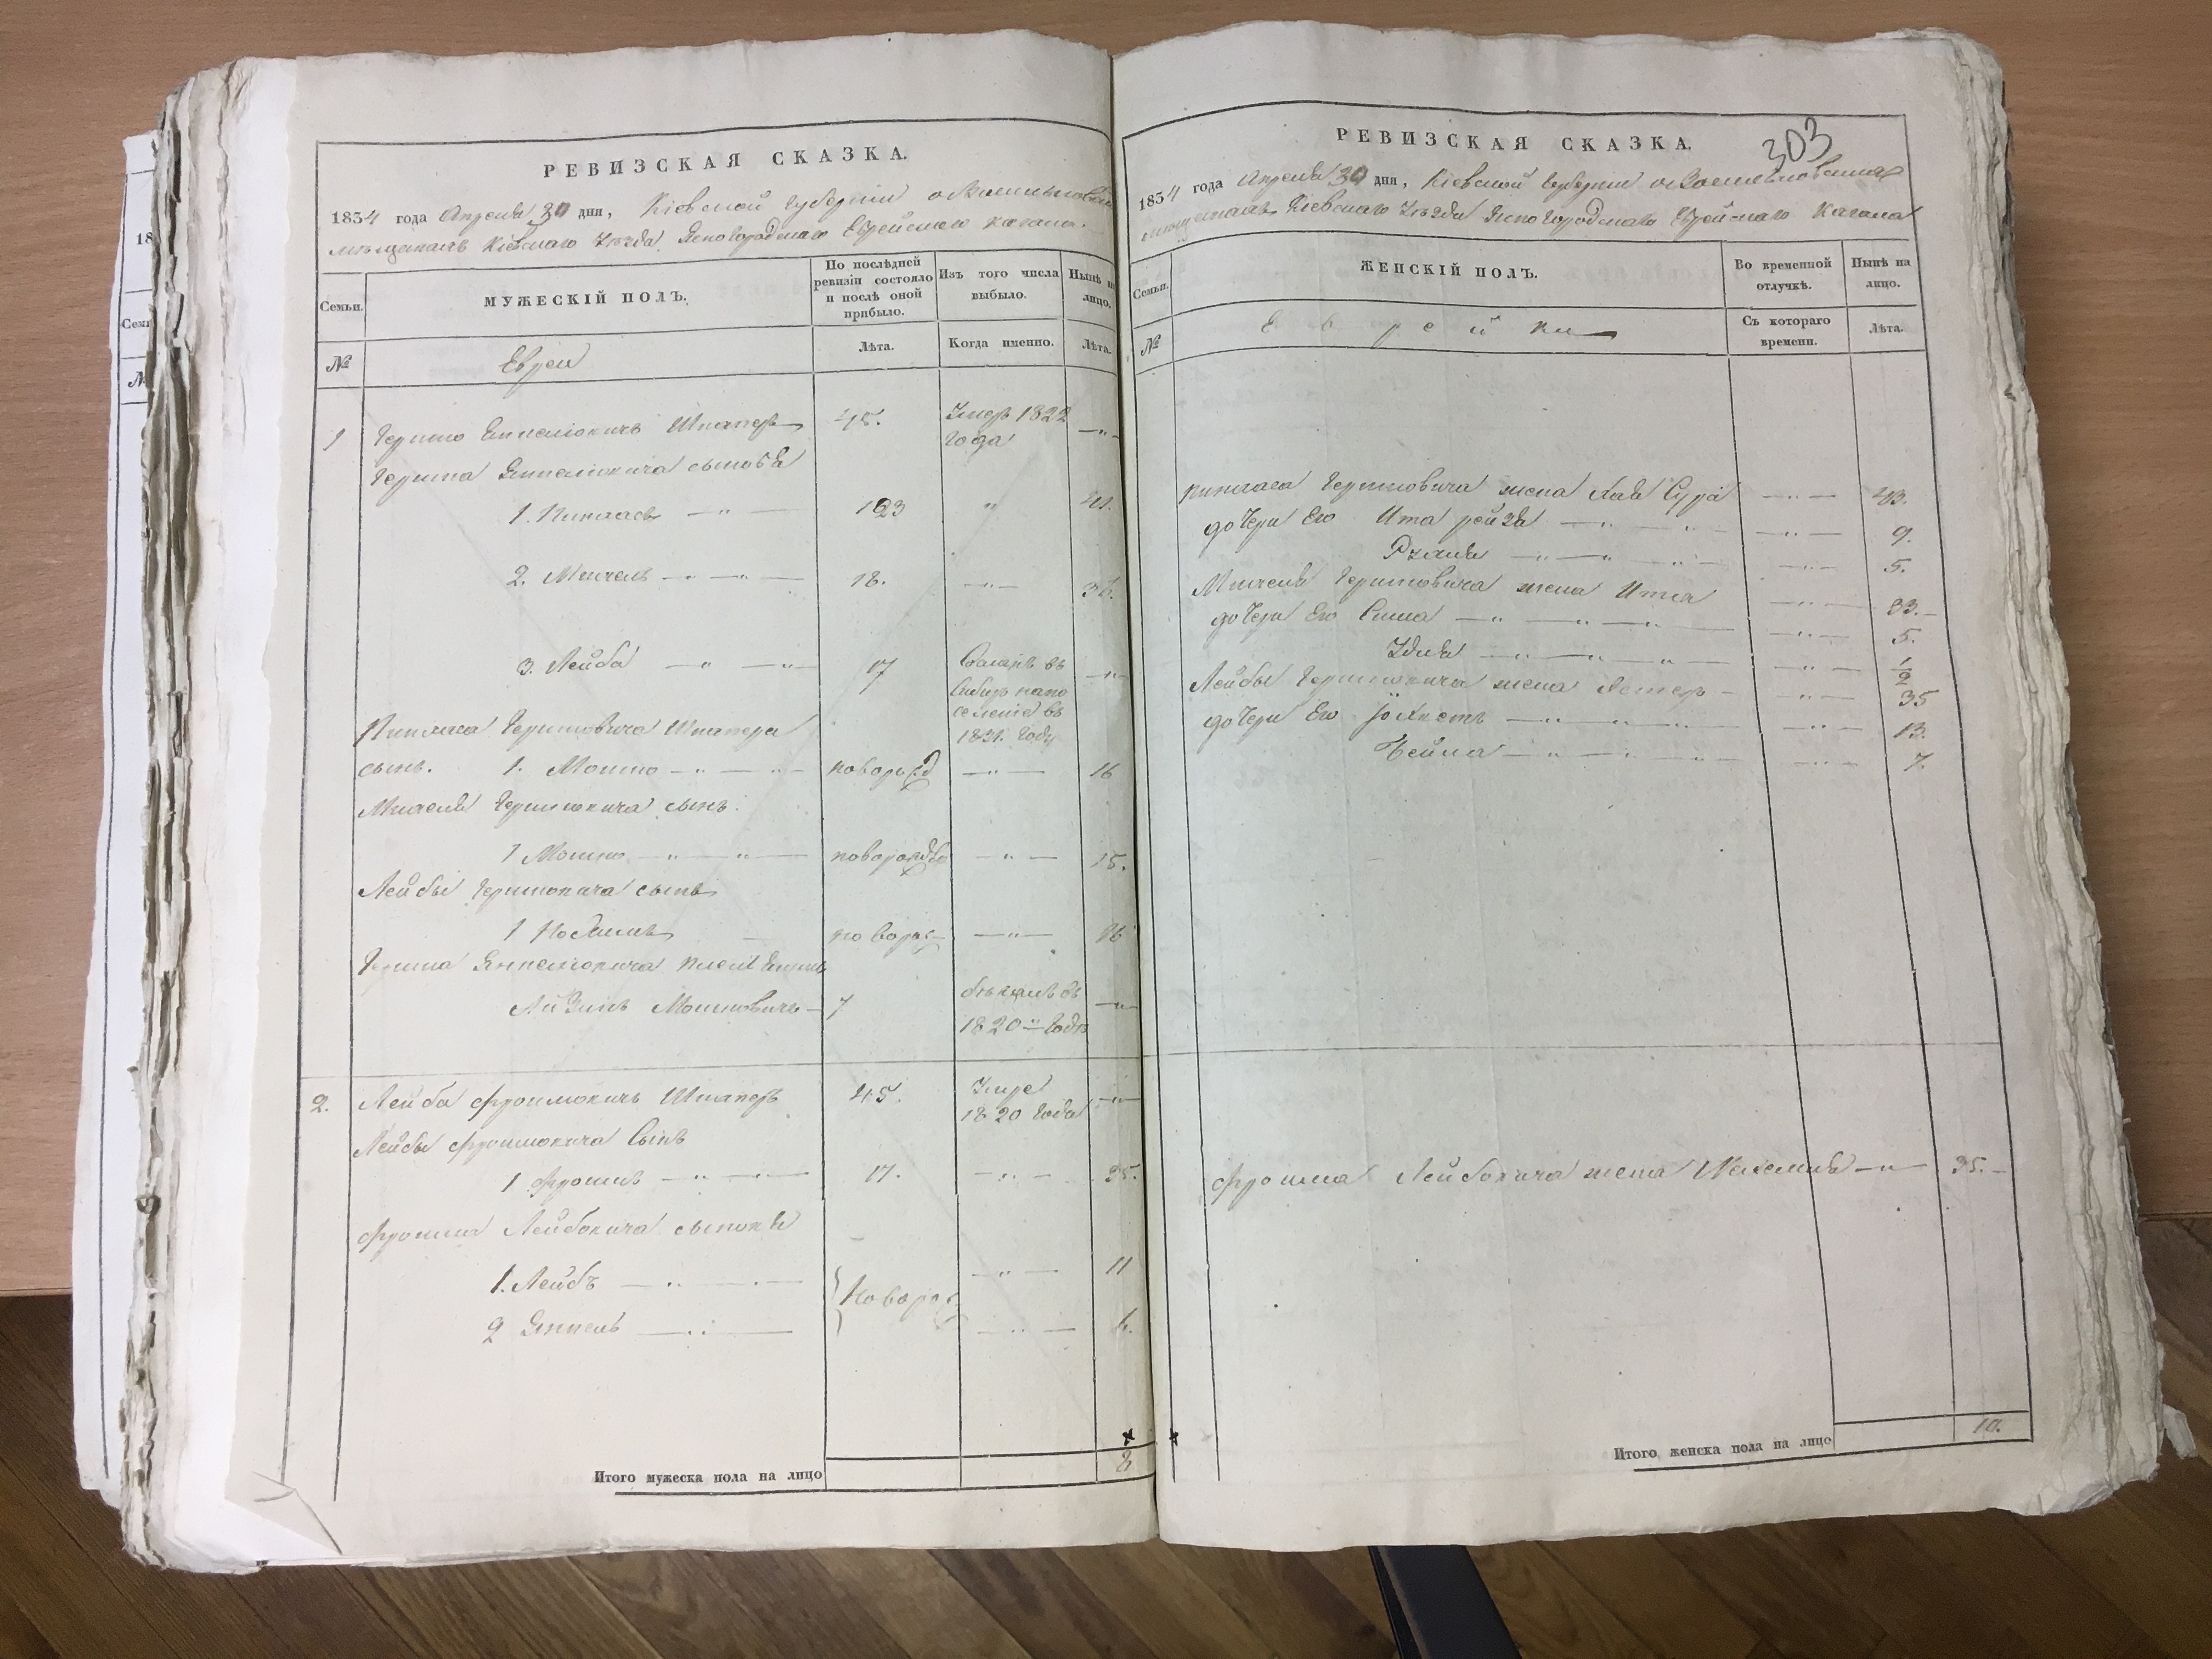 РЕВИЗСКАЯ СКАЗКА.
1834 года Апреля 30 дня, Кіевской Губерніи о Васильковскихъ
мѣщанахъ Кіевскаго Уѣзда Ясногородскаго Еврейскаго Кагала.
Семьи.
МУЖЕСКІЙ ПОЛЪ.
По послѣдней ревизіи состояло и послѣ оной прибыло.
Изъ того числа выбыло.
Нынѣ на лицо.
№
Евреи
Лѣта.
Когда именно.
Лѣта.
1 Гершко Янкелiовичъ Шпаперъ 45. Умеръ 1822 —"—
года
Гершка Янкелiовича сыновья
1. Пинхасъ — " — 23 " 41.
2. Михель — " — " — 18. — " — 36.
3. Лейба — " — " — 17 Сосланъ въ —"—
Сибирь на по
селеніе въ
1831. году
Пинхаса Гершковича Шпапера
сынъ. 1. Мошко — " — " — новорожд — " — 16
Михеля Гершковича сынъ.
1 Мошко — " — " — новорожд — " — 15.
Лейбы Гершковича сынъ
1 новорож — " — 16
Гершка Янкелiовича племянникъ
Айзикъ Мошковичъ — 7 бѣжалъ въ —"—
1820 — годѣ
2. Лейба Фроимовичъ Шпаперъ 45. Умре —"—
1820 года
Лейбы Фроимовича Сынъ
1 Фроимъ — " — " — 17. — " — 35.
Фроима Лейбовича сыновья
1. Лейбъ — " — " — Новорож — " — 11
2 Янкель — " — — " — 6.
Итого мужеска пола на лицо 8
303
РЕВИЗСКАЯ СКАЗКА.
1834 года Апреля 30 дня, Кіевской Губерніи о Васильковскихъ
мѣщанахъ Кіевскаго Уѣзда Ясногородскаго Еврейскаго Кагала
Семьи.
ЖЕНСКІЙ ПОЛЪ.
Во временной отлучкѣ.
Нынѣ на лицо.
№
Еврейки
Съ котораго времени.
Лѣта.
Пинхаса Гершковича жена Хая Сура — " — 43.
дочери Его Ита рейзя — " — " — — " — 9.
— " — " — " — — " — 5.
Михеля Гершковича жена Итта — " — 33.
дочери Его Сима — " — " — " — — " — 5.
— " — " — " — — " — 1/2
Лейбы Гершковича жена Эстеръ — — " — 35
дочери Его — " — " — " — — " — 13.
Чейна — " — " — " — — " — 7.
Фроима Лейбовича жена — " — 35.
Итого женска пола на лицо 10.